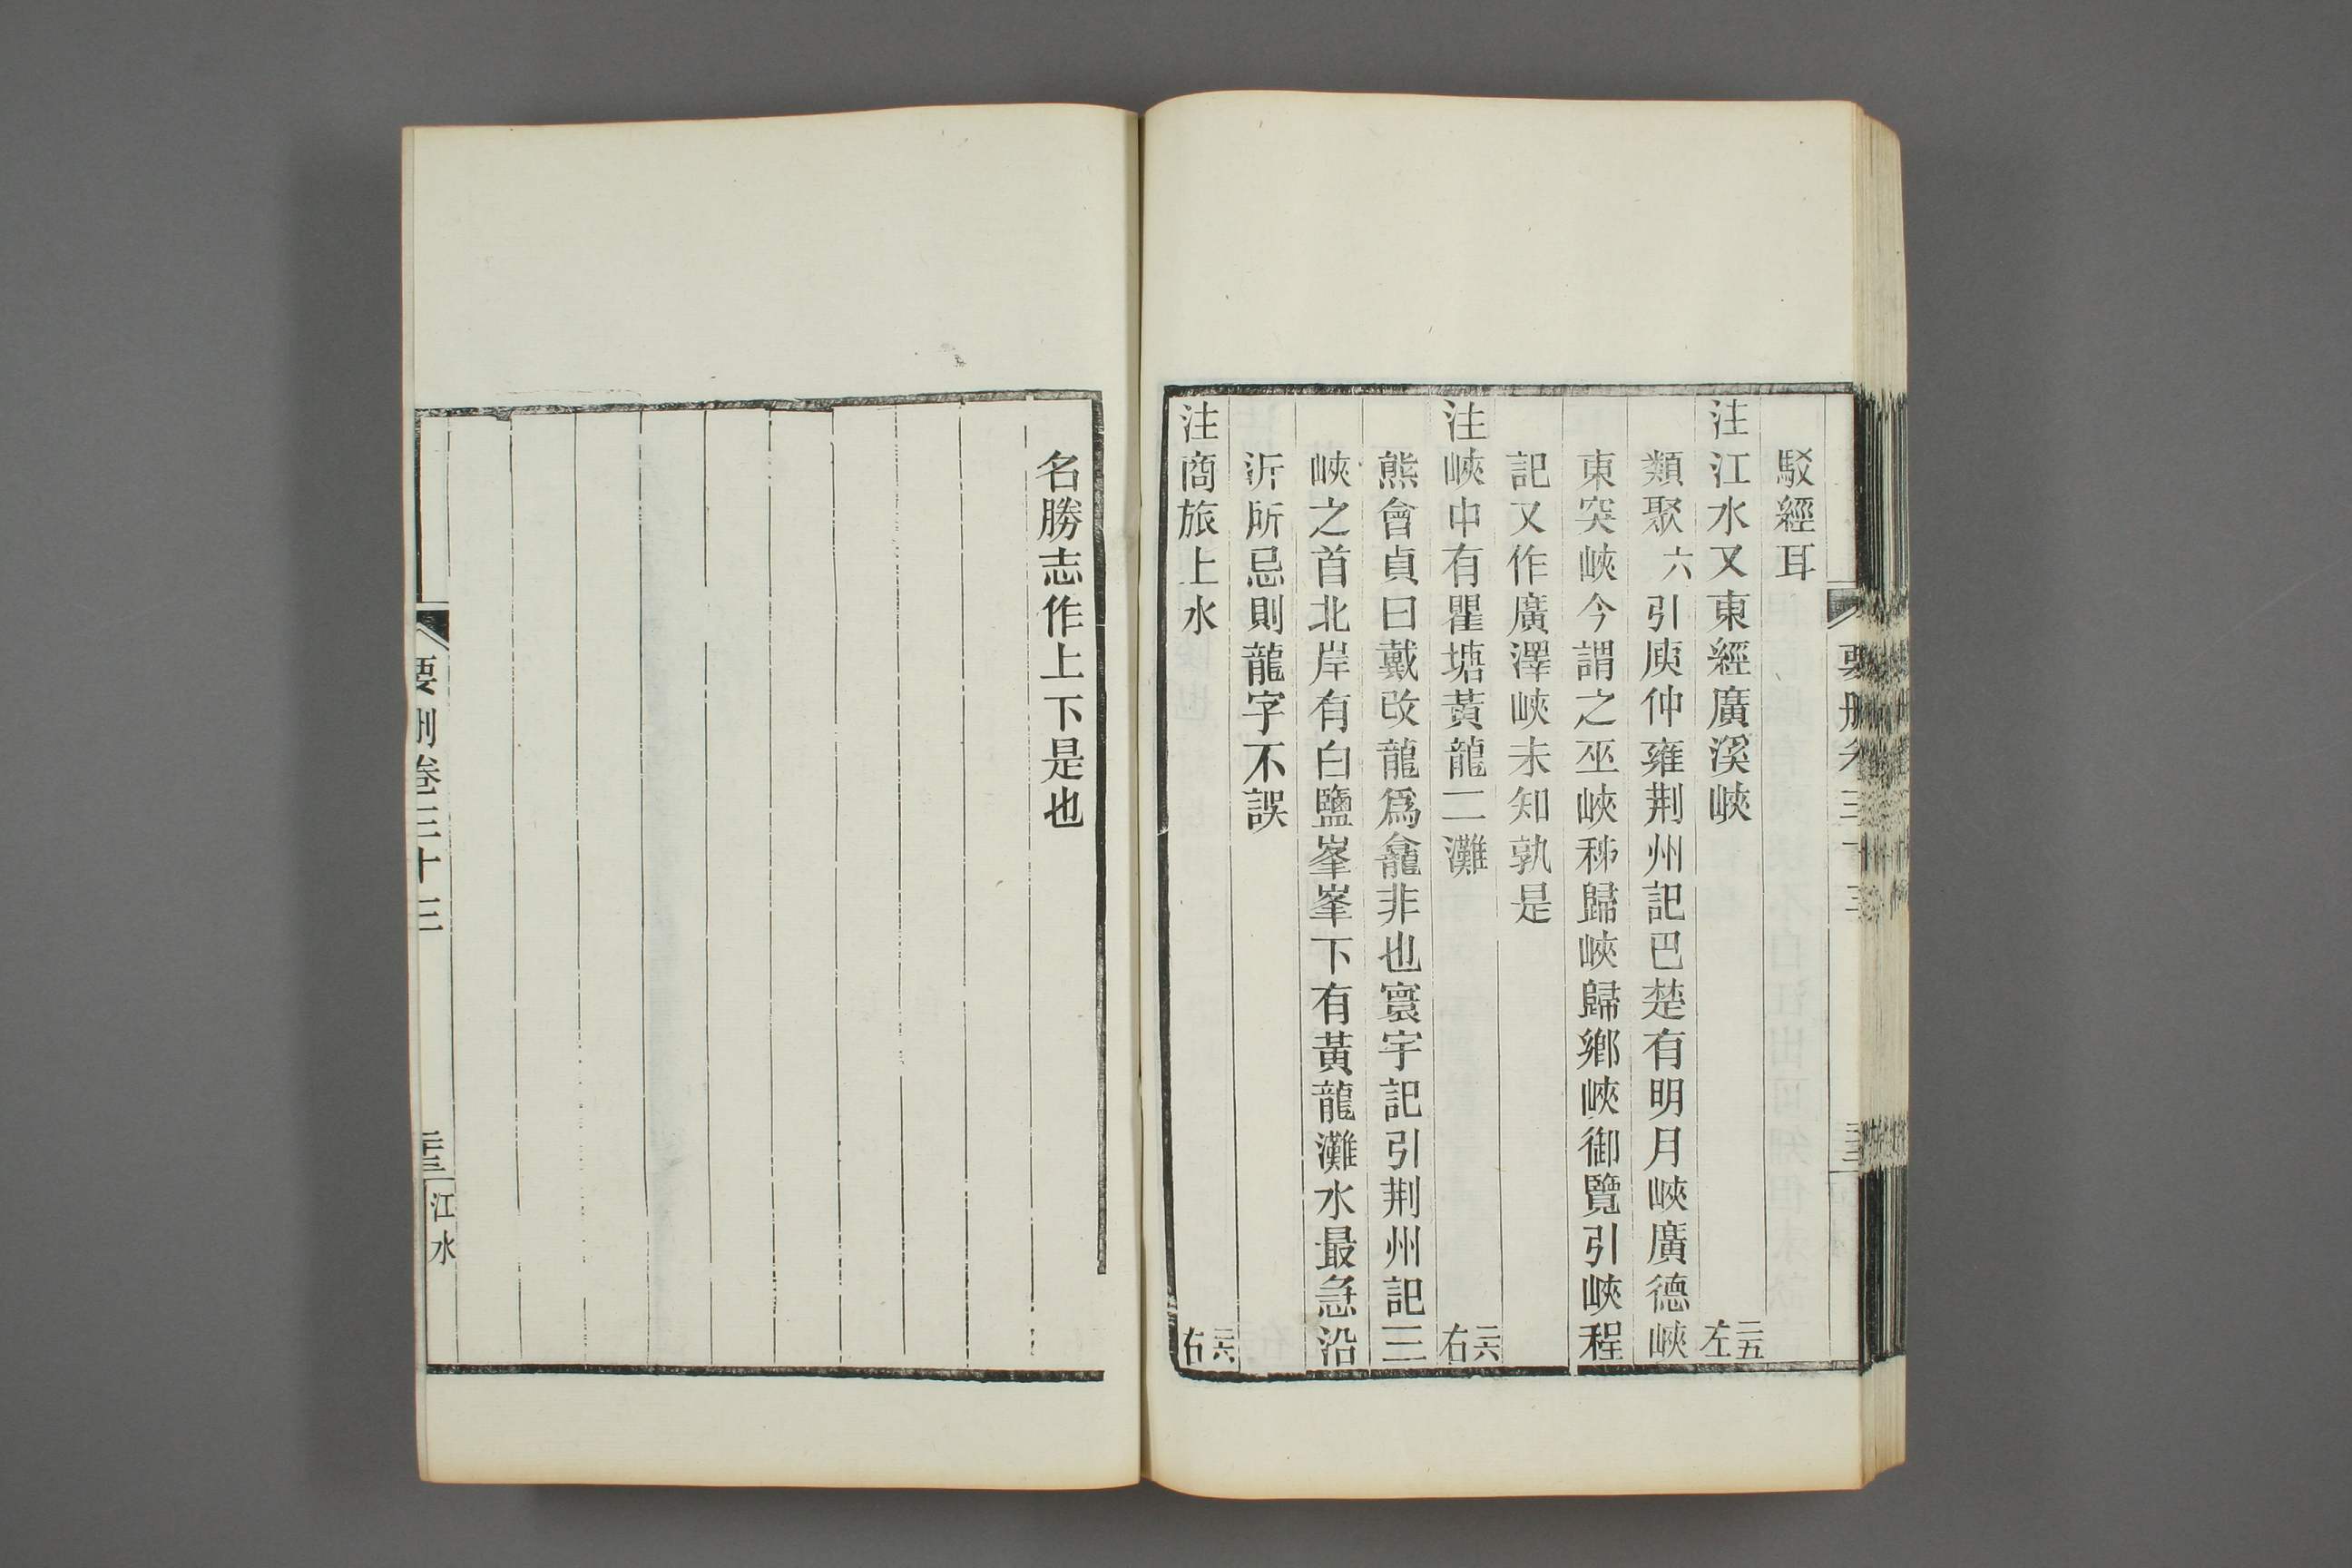 駁經耳
注江水又東經廣溪峽 二五左
類聚六引庾仲雍荆州記巴楚有明月峽廣德峽
東突峽今謂之巫峽秭歸峽歸鄉峽御覽引峽程
記又作廣澤峽未知孰是
注峽中有瞿塘黃龍二灘 二六右
熊會貞曰戴改龍爲龕非也寰宇記引荆州記三
峽之首北岸有白鹽峯峯下有黃龍灘水最急沿
泝所忌則龍字不誤
注商旅上水 二六右
名勝志作上下是也
要刪卷三十三
江水